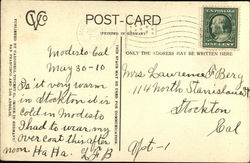 CVCo
POST-CARD
(PRINTED IN GERMANY)
ONLY THE ADDRESS MAY BE WRITTEN HERE
Modesto Cal
May-30-10
Is it very warm
in Stockton it is
cold in Modesto
I had to wear my
over coat this after
noon. Ha Ha. L.F.B
Mrs Lawrence F. Berg
114 North Stanislaus St
Stockton
Cal
Apt-1